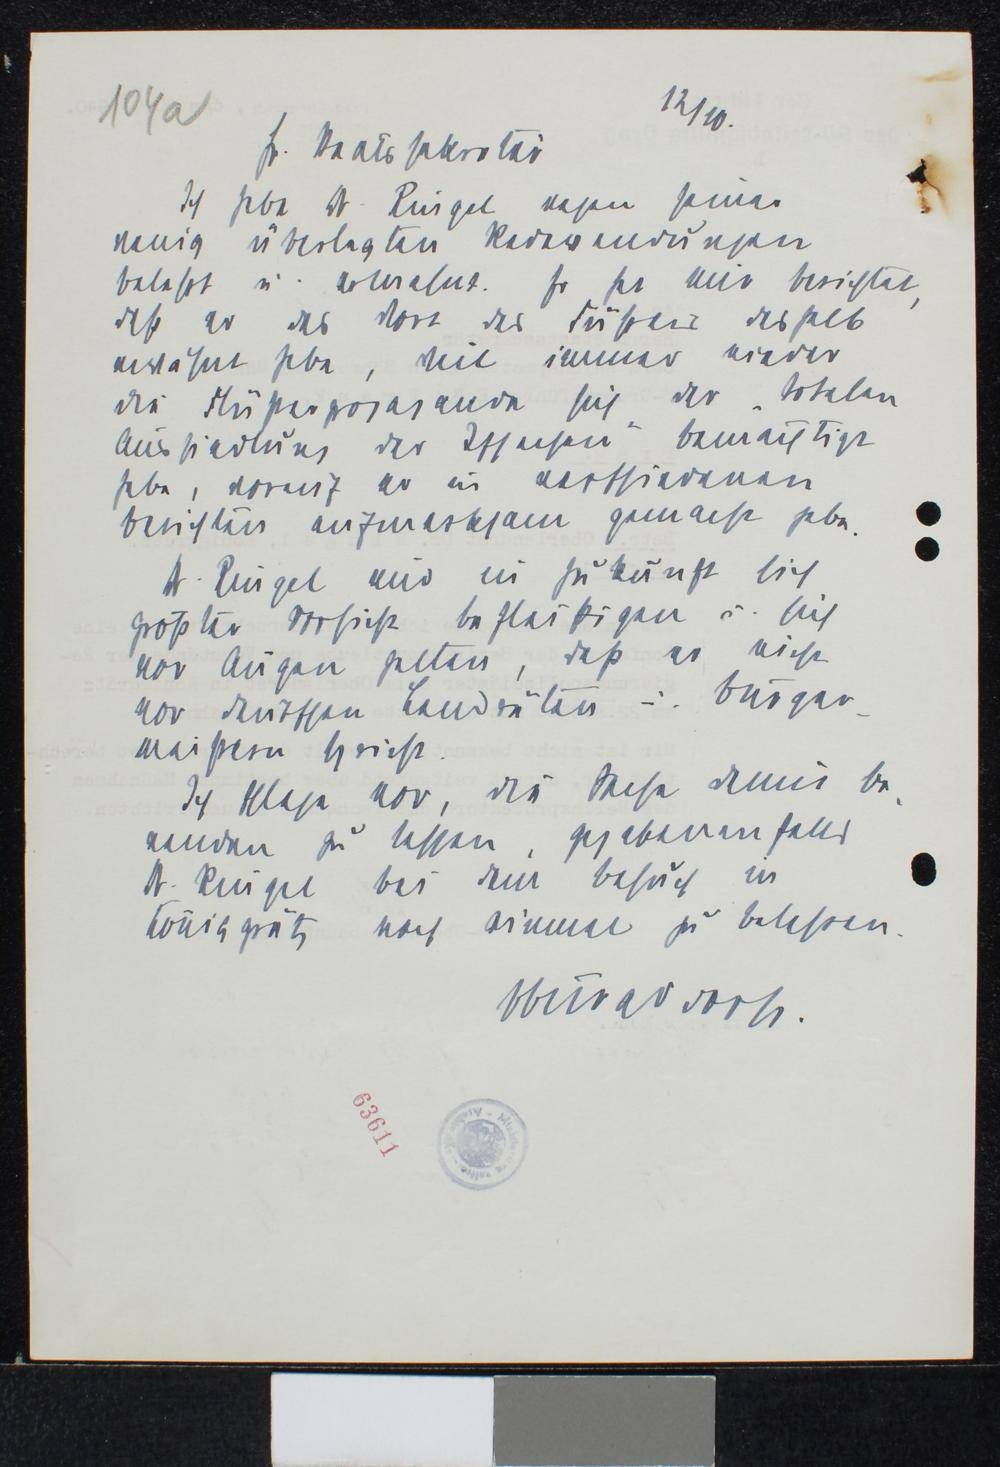 104a
12/10.
Hr. Staatssekretär
Ich habe Dr. Ringel wegen seiner
wenig überlegten Redewendungen
belehrt u. verwarnt. Er hat mir berichtet,
daß er das Wort des Führers deshalb
erwähnt habe, weil immer wieder
die Flüsterpropaganda sich der "totalen
Aussiedlung der Tschechen" bemächtigt
habe, worauf er in verschiedenen
Berichten aufmerksam gemacht habe.
Dr. Ringel wird in Zukunft sich
größter Vorsicht befleißigen u. sich
vor Augen halten, daß er nicht
vor deutschen Landräten u. Bürger-
meistern spricht.
Ich schlage vor, die Sache damit be-
wenden zu lassen, gegebenenfalls
Dr. Ringel bei dem Besuch in
Königgrätz noch einmal zu belehren.
63611